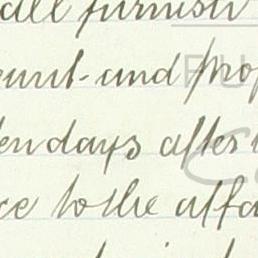 all furnish
and pro
ten days after
to the affa